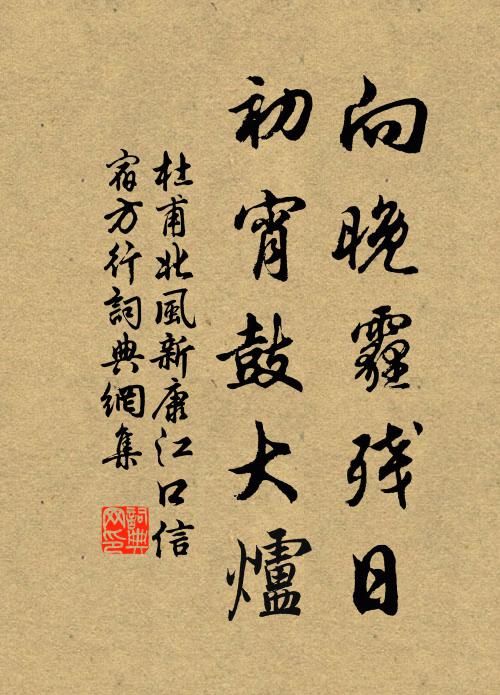 向晚霾残日
初宵鼓大爐
杜甫北風新康江口信
宿方行詞典網集
詞典
网印